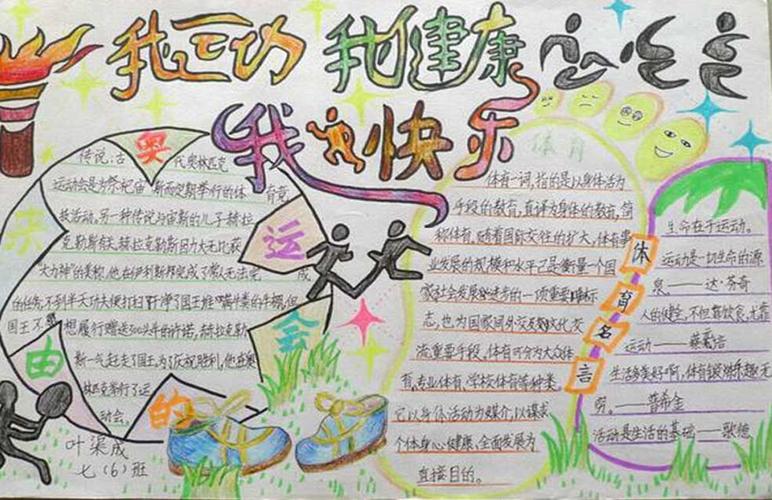 我运动 我健康
我快乐
奥运会的由来
传说古代奥林匹克
运动会是为祭祀宙斯而定期举行的体育竞
技活动。另一种传说与宙斯的儿子赫拉
克勒斯有关。赫拉克勒斯因力大无比获
大力神"的美称。他在伊利斯邦完成了常人无法完成
的任务,不到半天功夫便打扫干净了国王堆满牛粪的牛棚,但
国王不想履行赠送300头牛的许诺,赫拉克勒
斯一气赶走了国王。为了庆祝胜利,他在奥
林匹克举行了运
动会。
叶渠成
七(6)班
体育
体育一词,指的是以身体活为
手段的教育,直译为身体的教育,简
称体育。随着国际交往的扩大,体育事
业发展的规模和水平已是衡量一个国
家社会发展进步的一项重要标
志,也为国家间外交及文化交
流重要手段。体育可分为大众体
育,专业体育,学校体育等种类。
它以身体活动为媒介,以谋求
个体身心健康、全面发展为
直接目的。
体育名言
生命在于运动。
运动是一切生命的源
泉——达·芬奇
人的健全,不但靠饮食,尤靠
运动——蔡元培
生活多美好啊,体育锻炼乐趣无
穷。——普希金
活动是生活的基础——歌德